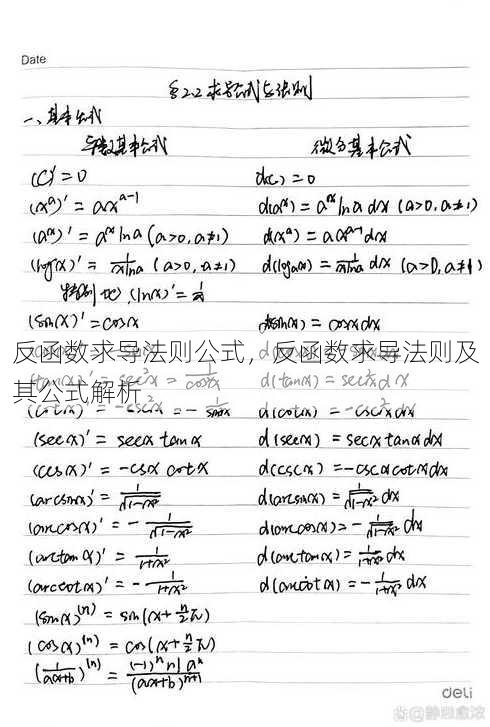 Date
§2.2 求导公式与法则
一、基本公式
导数基本公式 微分基本公式
(C)' = 0 d(c) = 0
(x^a)' = ax^{a-1} d(a^x) = a^x ln a dx (a>0, a≠1)
(a^x)' = a^x ln a (a>0, a≠1) d(x^a) = a x^{a-1} dx
(log_a x)' = 1/(x ln a) (a>0, a≠1) d(log_a x) = 1/(x ln a) dx (a>0, a≠1)
特别地, (ln x)' = 1/x
(sin x)' = cos x d(sin x) = cos x dx
反函数求导法则公式，反函数求导法则及
(tan x)' = sec²x = 1/cos²x d(tan x) = sec²x dx
其公式解析
(cot x)' = -csc²x = - d(cot x) = -csc²x dx
(sec x)' = sec x tan x d(sec x) = sec x tan x dx
(csc x)' = -csc x cot x d(csc x) = -csc x cot x dx
(arcsin x)' = 1/√(1-x²) d(arcsin x) = 1/√(1-x²) dx
(arccos x)' = - 1/√(1-x²) d(arccos x) = - 1/√(1-x²) dx
(arctan x)' = 1/(1+x²) d(arctan x) = 1/(1+x²) dx
(arccot x)' = - 1/(1+x²) d(arccot x) = - 1/(1+x²) dx
(sin x)^{(n)} = sin(x + n/2 π)
(cos x)^{(n)} = cos(x + n/2 π)
(1/(ax+b))^{(n)} = (-1)^n n! a^n/(ax+b)^{n+1}
deli